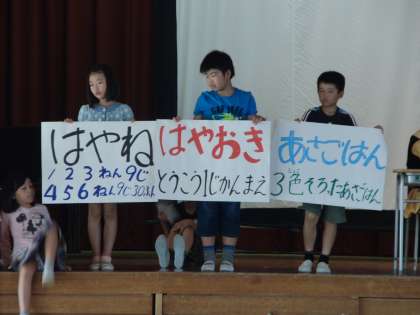 はやね
1 2 3 ねん 9じ
4 5 6 ねん 9じ30ぷん
はやおき
とうこう1じかんまえ
あさごはん
3色そろったあさごはん